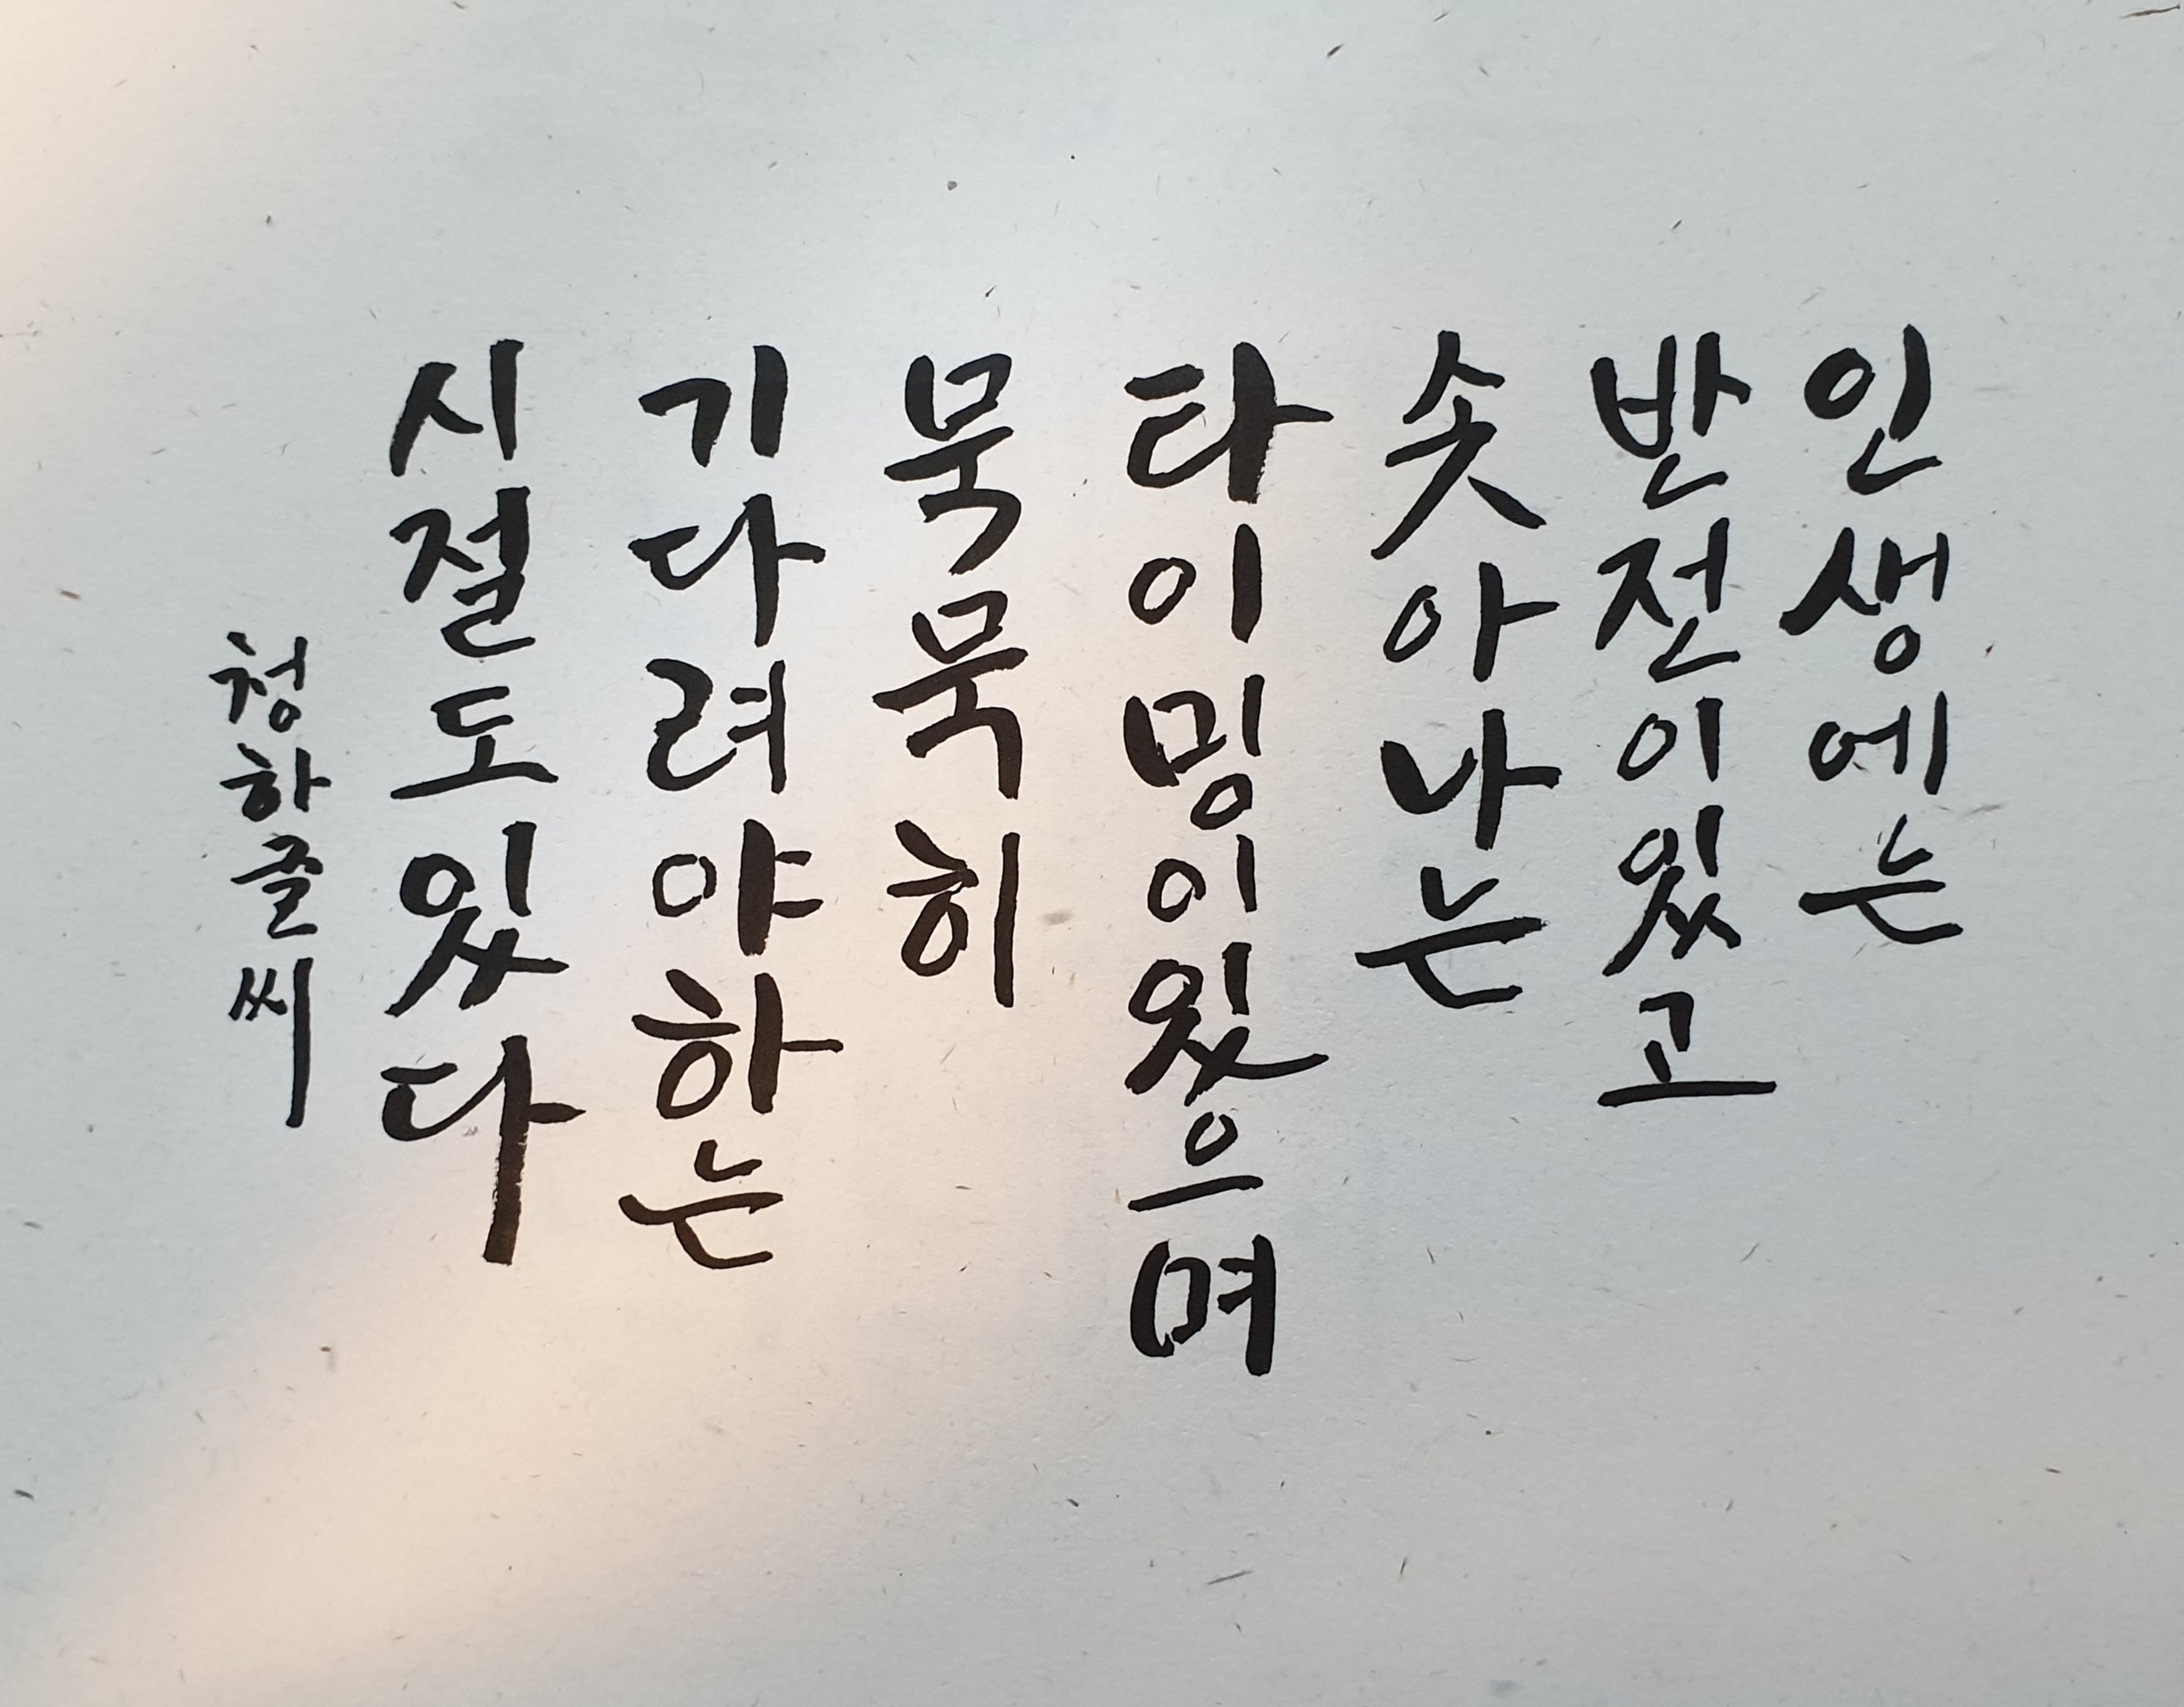 인생에는
반전이있고
솟아나는
타이밍이있으며
묵묵히
기다려야하는
시절도있다
청하글씨